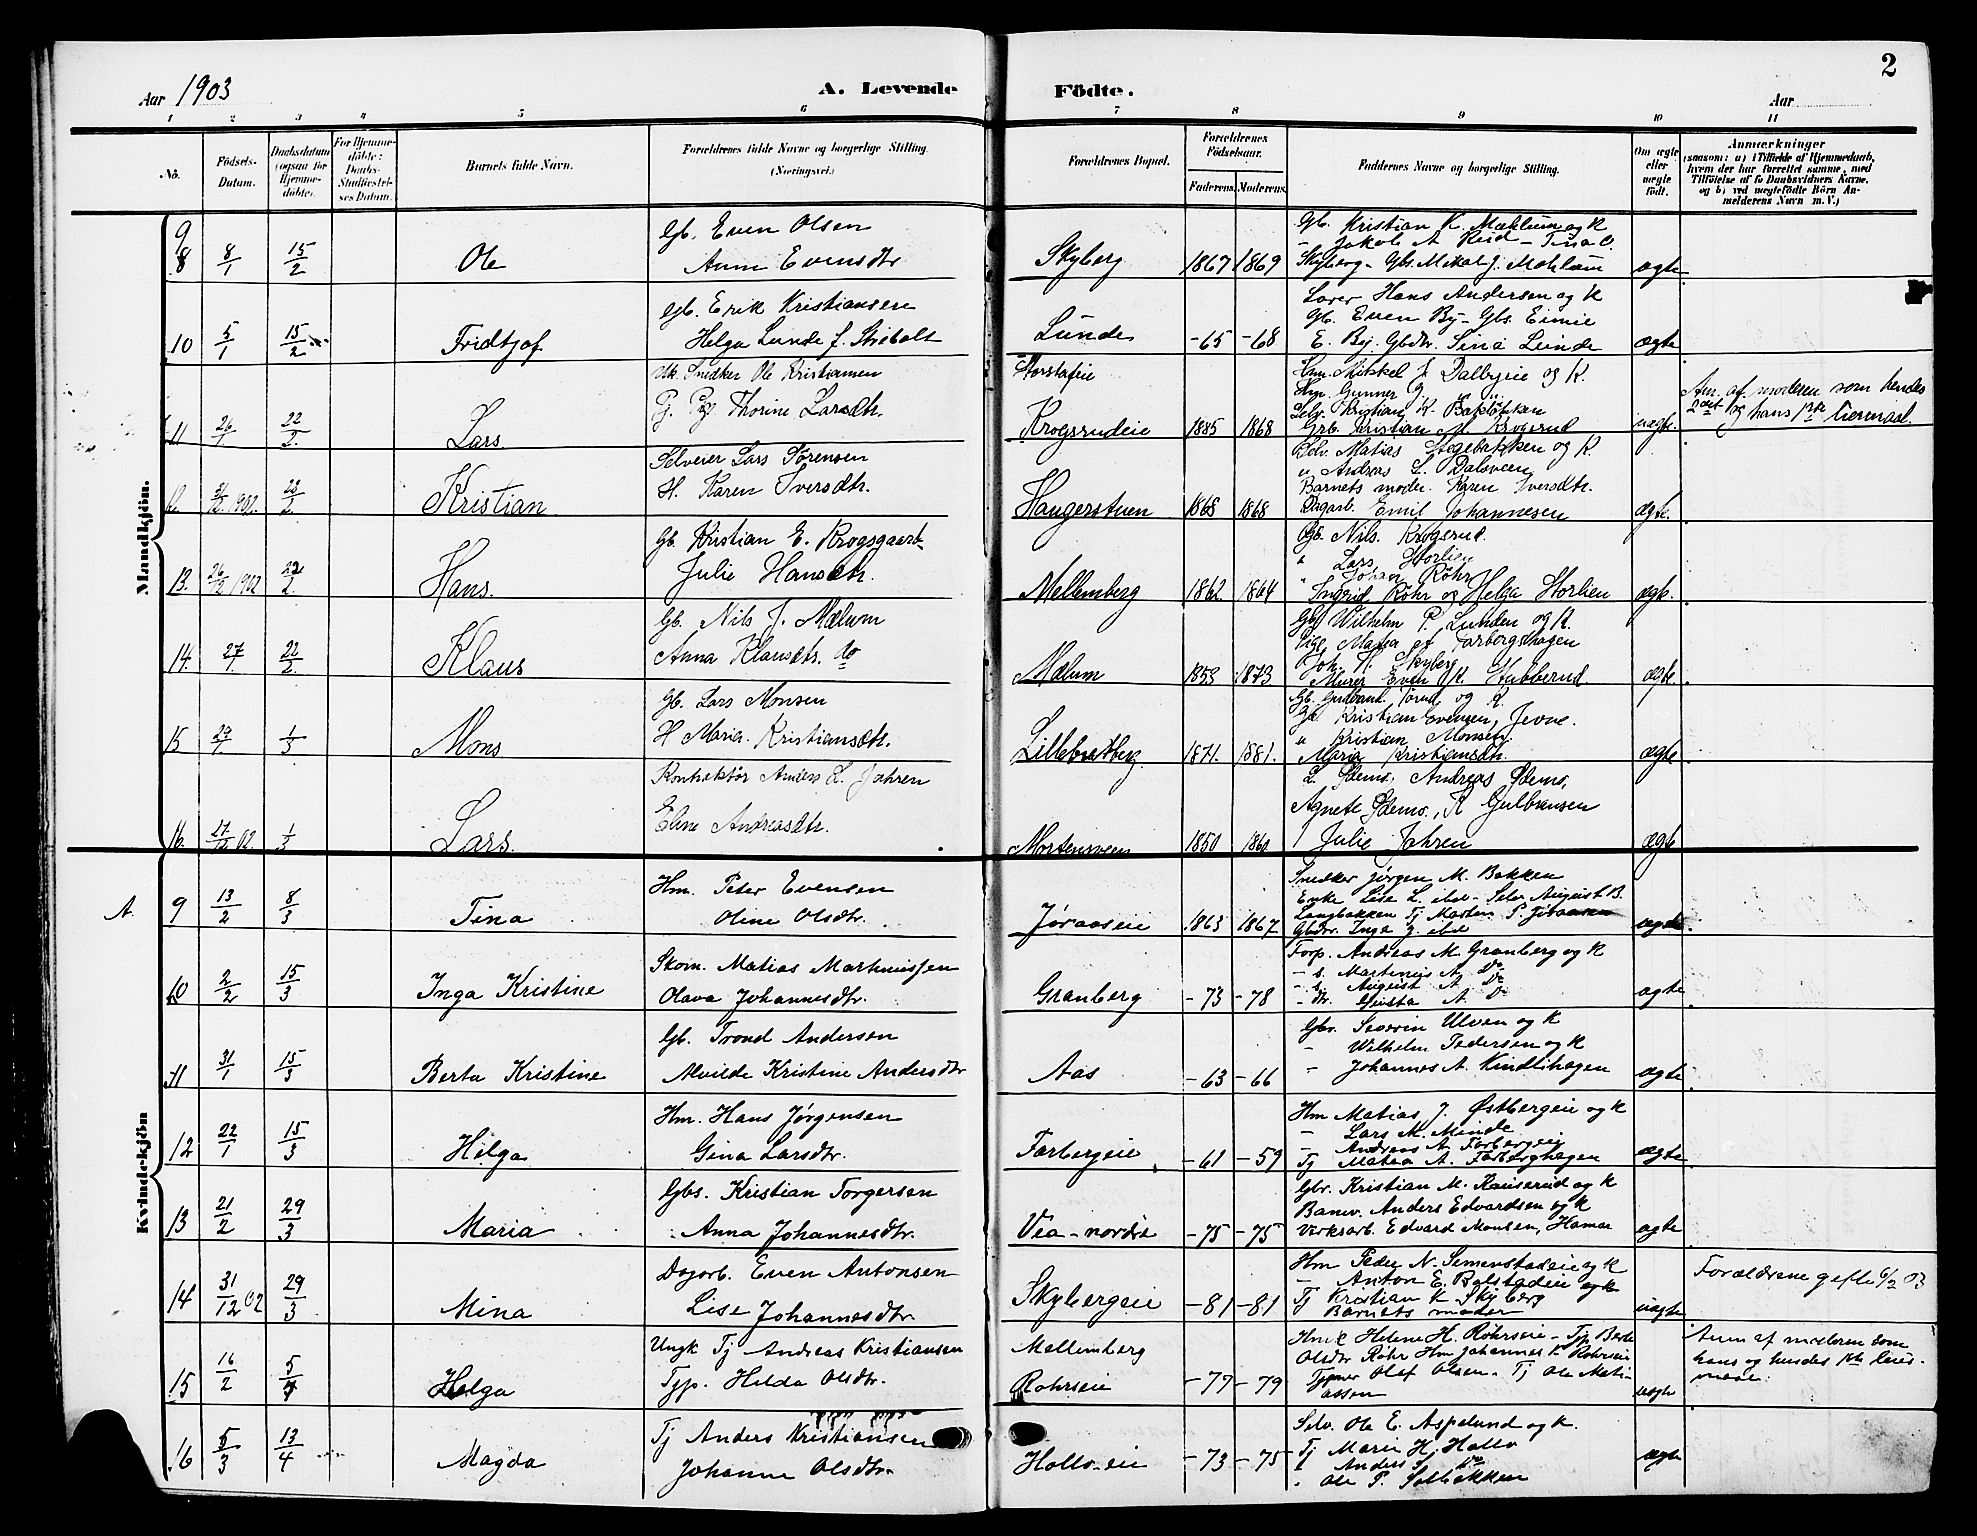 2
Aar 1903
A. Levende Födte.
Aar
1 2 3 4 5 6 7 8 9 10 11
No.
Födsels-Datum.
Daabsdatum (ogsaa for Hjemme-döbte).
For Hjemme-döbte: Daabs-Stadfæstel-ses Datum.
Barnets fulde Navn.
Forældrenes fulde Navne og borgerlige Stilling. (Næringsvei.)
Forældrenes Bopæl.
Forældrenes Födselsaar.
Faderens. Moderens.
Faddernes Navne og borgerlige Stilling.
Om ægte eller uægte födt.
Anmærkninger
(saasom: a) i Tilfælde af Hjemmedaab,
hvem der har forrettet samme, med
Tilföielse af to Daabsvidners Navne,
og b) ved uegtefödte Börn An-
melderens Navn m. V.)
Mandkjön.
9 8/1 15/2 Ole
Gb. Even Olsen
Anne Evensdtr
Skyberg 1867 1869
Gb. Kristian K. Mæhlum og K
Jakob A Reid - Tina O.
Skyberg - Gbs. Mikal J. Mæhlum
ægte
10 5/1 15/2 Fridtjof
Gb. Erik Kristiansen
Helga Lunde f. Stribolt
Lunde -65 -68
Lærer Hans Andersen og K
Gb. Even By - Gbs. Eimie
E. By. Gbdtr. Sina Lunde
ægte
11 26/1 22/2 Lars
Uk. Snedker Ole Kristiansen
Pg. Thorine Larsdtr.
Horstaeie
Krogsrudeie 1885 1868
Hm. Mikkel J. Dalbyeie og K.
Selv. Kristian K. Bakløkken
Grb. Kristian M. Krogsrud
uægte
Anm. af moderen som hendes
2det og hans 1ste leiermaal.
12. 31/12 1902. 23/2 Kristian
Selveier Lars Sørensen
H. Karen Iversdtr.
Haugerstuen 1868 1868
Selv. Matias Stegebakken og K.
" Andreas L. Dalsveen
Barnets moder. Karen Iversdtr.
Dagarb. Emil Johannesen
ægte.
13. 26/12 1902 22/2 Hans.
Gb. Kristian E. Krogsgaard
Julie Hansdtr.
Mellemberg 1862. 1864
Gb. Nils Krogsrud.
" Lars Storlien
" Johan Röhr
Ingrid Röhr og Helga Storlien
ægte.
14. 27/1. 22/2. Klaus
Gb. Nils J. Mælum
Anna Klausdtr. do
Mælum 1853 1873
Gb. Wilhelm P. Lunden og K.
Pige Matea af Farbergshagen
Joh. H. Skyberg
Murer Even K. Stubberud.
ægte.
15 29/1 1/3 Mons
Gb. Lars Monsen
H Maria Kristiansdtr.
Lillebratberg 1871. 1881.
Gb. Gudbrand Torud og K.
Gb. Kristian Evensen Jevne.
" Kristian Monsen
Maria Kristiansdtr.
ægte
16. 27/12 02. 1/3 Lars.
Kontraktör Anders L. Jahren
Eline Andreasdtr.
Mortensveen 1850 1860.
L. Ødems. Andreas Ødems,
Agnete Ødems., K Gulbransen
Julie Jahren
ægte
Kvindekjön
A. 9 13/2 8/3 Tina
Hm. Peter Evensen
Oline Olsdtr.
Jøraaseie 1863 1867
Snedker Jørgen M. Bakken
Enke Lise L. ibd - Selv August B.
Langbakken Tj Marten P. Jøraasen
Gbdtr. Inga J. ibd
ægte
10 2/2 15/3 Inga Kristine
Skom. Matias Martinussen
Olava Johannesdtr.
Granberg -73 -78
Forp. Andreas M. Granberg og K
- s. Martenius A Do
- s. August A Do
- dtr. Gusta A Do
ægte
11 31/1 15/3 Berta Kristine
Gb. Trond Andersen
Alvilde Kristine Andersdtr
Aas -63 -66
Gbr. Severin Ulven og K
- Wilhelm Pedersen og K
- Johannes A. Kindlihagen
ægte
12 22/1 15/3 Helga
Hm. Hans Jørgensen
Gina Larsdtr.
Farbergeie -61 -59
Hm Matias J. Østbergeie og K
- Lars M. Minde
- Andreas A. Farbergeie
Tj Matea A. Farberghagen
ægte
13 21/2 29/3 Maria
Gbs. Kristian Torgersen
Anna Johannesdtr.
Vea - nordre -75 -75
Gbr. Kristian M. Kauserud og K
Banev. Anders Edvardsen og K
Verksarb. Edvard Monsen, Hamar
ægte
14 31/12 02 29/3 Mina
Dagarb. Even Antonsen
Lise Johannesdtr.
Skybergeie -81 -81
Hm Peder N. Semenstadeie og K
- Anton E. Bolstadeie og K
Tj Kristian K Skyberg
Barnets moder
uægte
Forældrene gifte 6/2 03
15 16/2 5/4 Helga
Ungk Tj Andreas Kristiansen
Tjp. Helda Olsdtr.
Mellemberg
Röhrseie -77 -79
Hmk Helene H. Röhrseie - Tjp Berte
Olsdtr Röhr Hm Johannes K Röhrseie
Olaf Olsen. Tj Ole Mati-
assen
uægte
Anm af moderen som
hans og hendes 1ste leier-
maal.
16 5/3 13/4 Magda
Tj Anders Kristiansen
Johanne Olsdtr.
Hollo-eie -73 -75
Selv. Ole E. Aspelund og K.
Tj Marie H. Hollo
" Anders S. Do
" Ole P. Solbakken
ægte